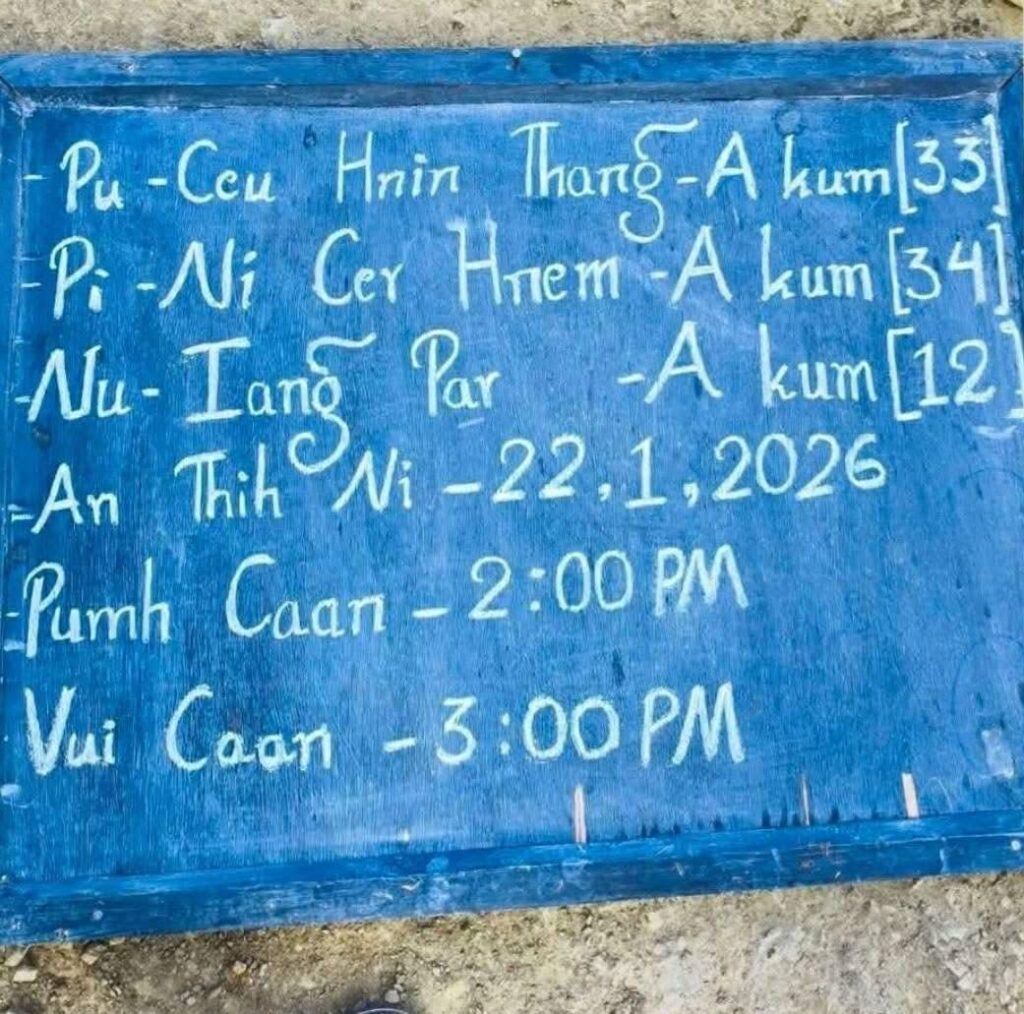 - Pu - Ceu Hnin Thang - A kum [33]
- Pi - Ni Cer Hnem - A kum [34]
- Nu - Iang Par - A kum [12]
- An Thih Ni - 22,1,2026
- Pumh Caan - 2:00 PM
Vui Caan - 3:00 PM